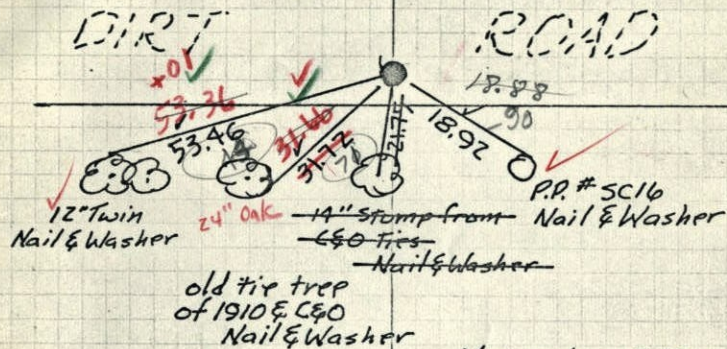 DIRT ROAD
×01
53.36
53.46
31.66
31.72
70
21.75
18.88
18.92
90
12" Twin
Nail & Washer
24" Oak
14" Stump from
C&O Ties
Nail & Washer
P.P. # SC16
Nail & Washer
old tie tree
of 1910 & C&O
Nail & Washer